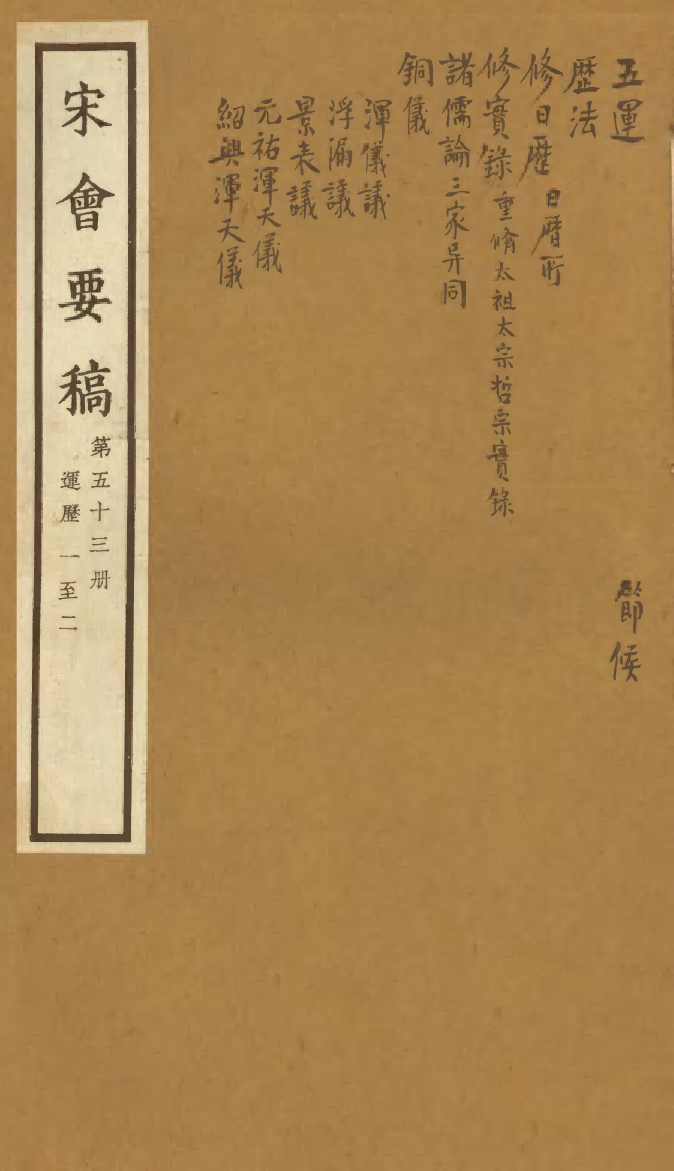 五運 節候
歷法
修日歷 日曆所
修實錄 重脩太祖太宗哲宗實錄
諸儒論三家异同
銅儀
渾儀議
浮漏議
景表議
元祐渾天儀
紹興渾天儀
宋會要稿
第五十三册
運歷 一至二